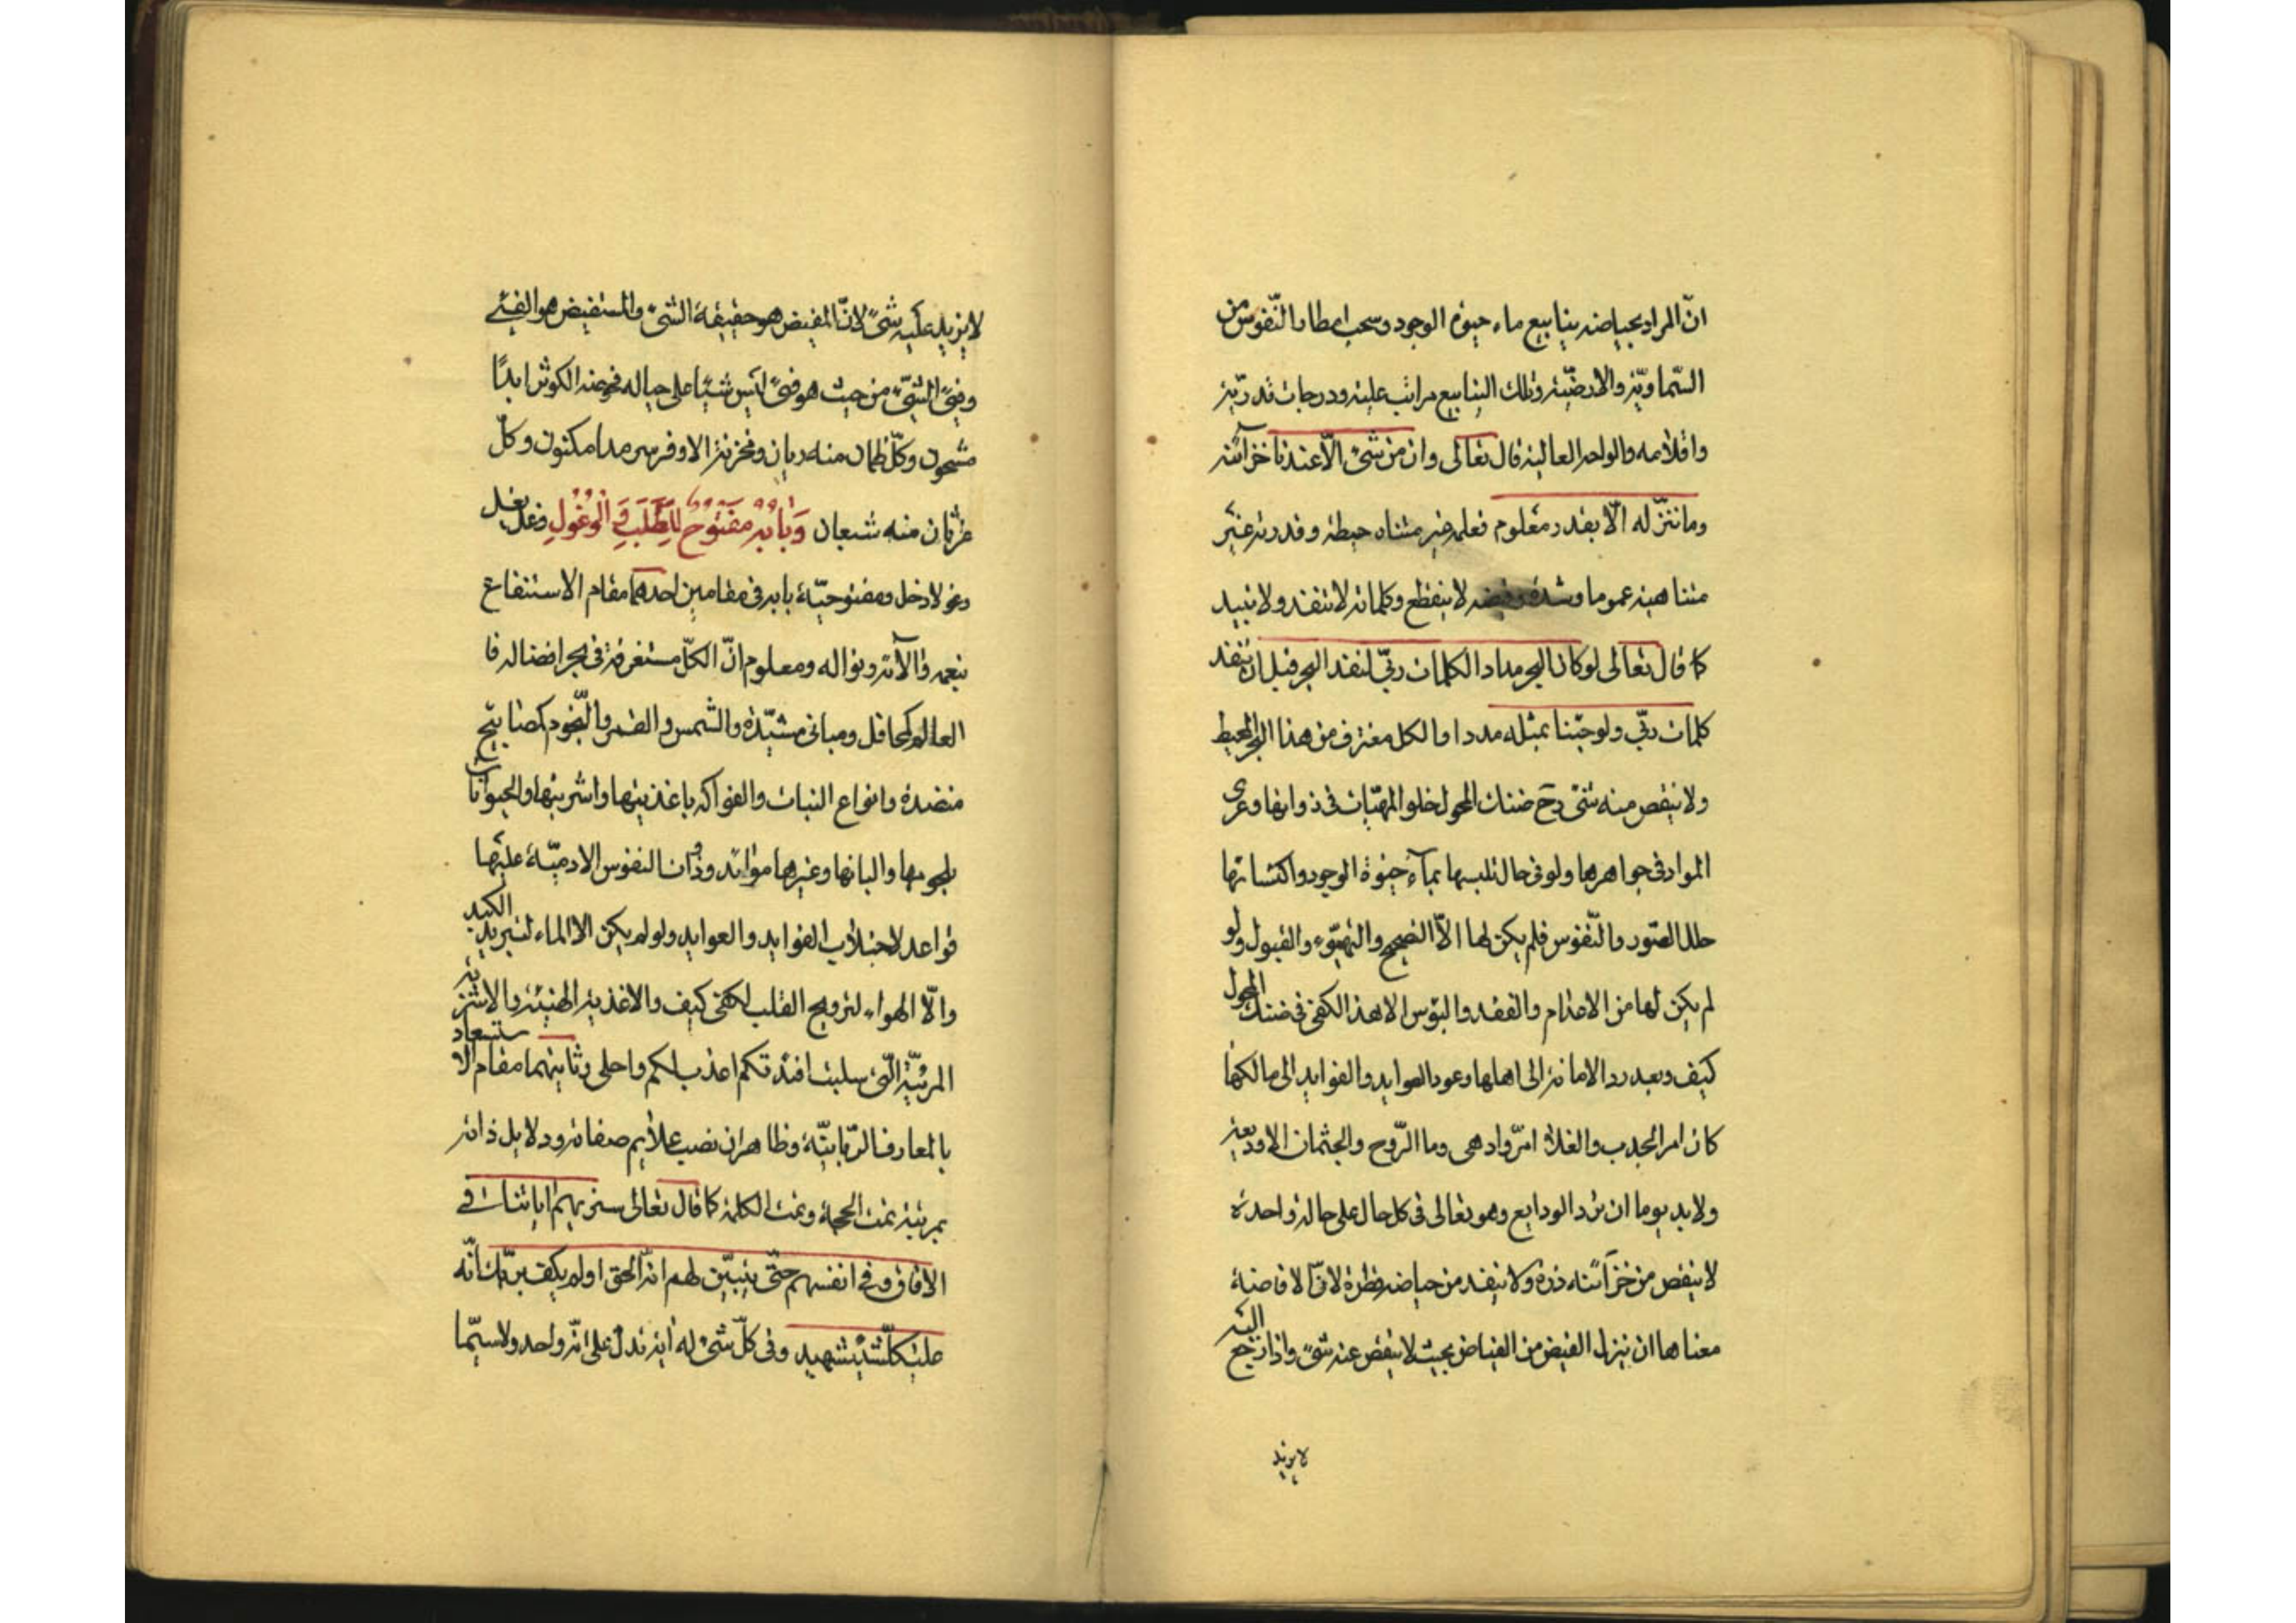 انّ المراد بحياضه ينابيع ماء حيوة الوجود وسحب امطار النّفوس من
السّماويّة والارضيّة وتلك الينابيع مراتب علية ودرجات قدريّة
واقلامه والواحه العالية قال تعالى وان من شئ الّا عندنا خزآئنه
وما ننزّله الّا بقدر معلوم فعلمه غير متناه حيطة وقدرته غير
متناهية عموما وشدة وفيضه لا ينقطع وكلماته لا تنفد ولا تبيد
كما قال تعالى لو كان البحر مدادا لكلمات ربّى لنفد البحر قبل ان تنفد
كلمات ربّى ولو جئنا بمثله مددا والكل مغترف من هذا البحر المحيط
ولا ينقص منه شئ وح ضنك المحول لخلو المهيّات فى ذواتها وعرى
المواد فى جواهرها ولو فى حال تلبسها بمآء حيوة الوجود واكتسائها
حلل الصّور والنّفوس فلم يكن لها الّا والتهيّوء والقبول ولو
لم يكن لها من الاعدام والفقد والبؤس الا هذا لكفى فى ضنك المحول
كيف وبعد رد الامانة الى اهلها وعود العوايد والفوايد الى مالكها
كان امر الجدب والغلاء امرّ وادهى وما الرّوح والجثمان الا وديعة
ولا بد يوما ان ترد الودايع وهو تعالى فى كل حال على حالة واحدة
لا ينقص من خزآئنه ذرة ولا ينفد من حياضه قطرة لانّ الافاضة
معناها ان ينزل الفيض من الفياض بحيث لا ينقص عنه شئ واذا رجع اليه
لا يزيد
لا يزيد عليه شئ لانّ المفيض هو حقيقة الشئ والمستفيض هو الفئ
وفئ الشئ من حيث هو فئ ليس شيئا على حياله فحوضه الكوثر ابدًا
مشحون وكلّ ظمآن منه ريان ومخزنة الاوفر سرمدا مكنون وكلّ
غرثان منه شبعان وَبَابُهُ مَفْتُوحٌ لِلطَّلَبِ وَالْوُغُولِ وغل يغل
وغولا دخل ومفتوحيّة بابه فى مقامين احدهما مقام الاستنفاع
بنعمه وآلآئه ونواله ومعلوم انّ الكلّ مستغرقة فى بحر افضاله فا
العالم كمحافل ومبانى مشيّدة والشّمس والقمر والنّجوم كمصابيح
منضدة وانواع النبات والفواكه باغذيتها واشربتها والحيوانات
بلحومها والبانها وغيرها موائد وذوات النفوس الادميّة عليها
قواعد لاجتلاب الفوايد والعوايد ولو لم يكن الا الماء لتبريد الكبد
والّا الهواء لترويح القلب لكفى كيف والاغذية الهنيئة والاشربة
المريّة الّتى سلبت افئدتكم اعذب لكم واحلى وثانيهما مقام الاستسعاد
بالمعارف الرّبانيّة وظاهر ان نصب علايم صفاته ودلايل ذاته
بمرئية تمت الحجة وتمت الكلمة كما قال تعالى سنريهم اياتنا فى
الافاق وفى انفسهم حتّى يتبيّن لهم انّه الحق اولم يكف بربّك انّه
على كلّ شئ شهيد وفى كلّ شئ له اية تدل على انّه واحد ولا سيّما